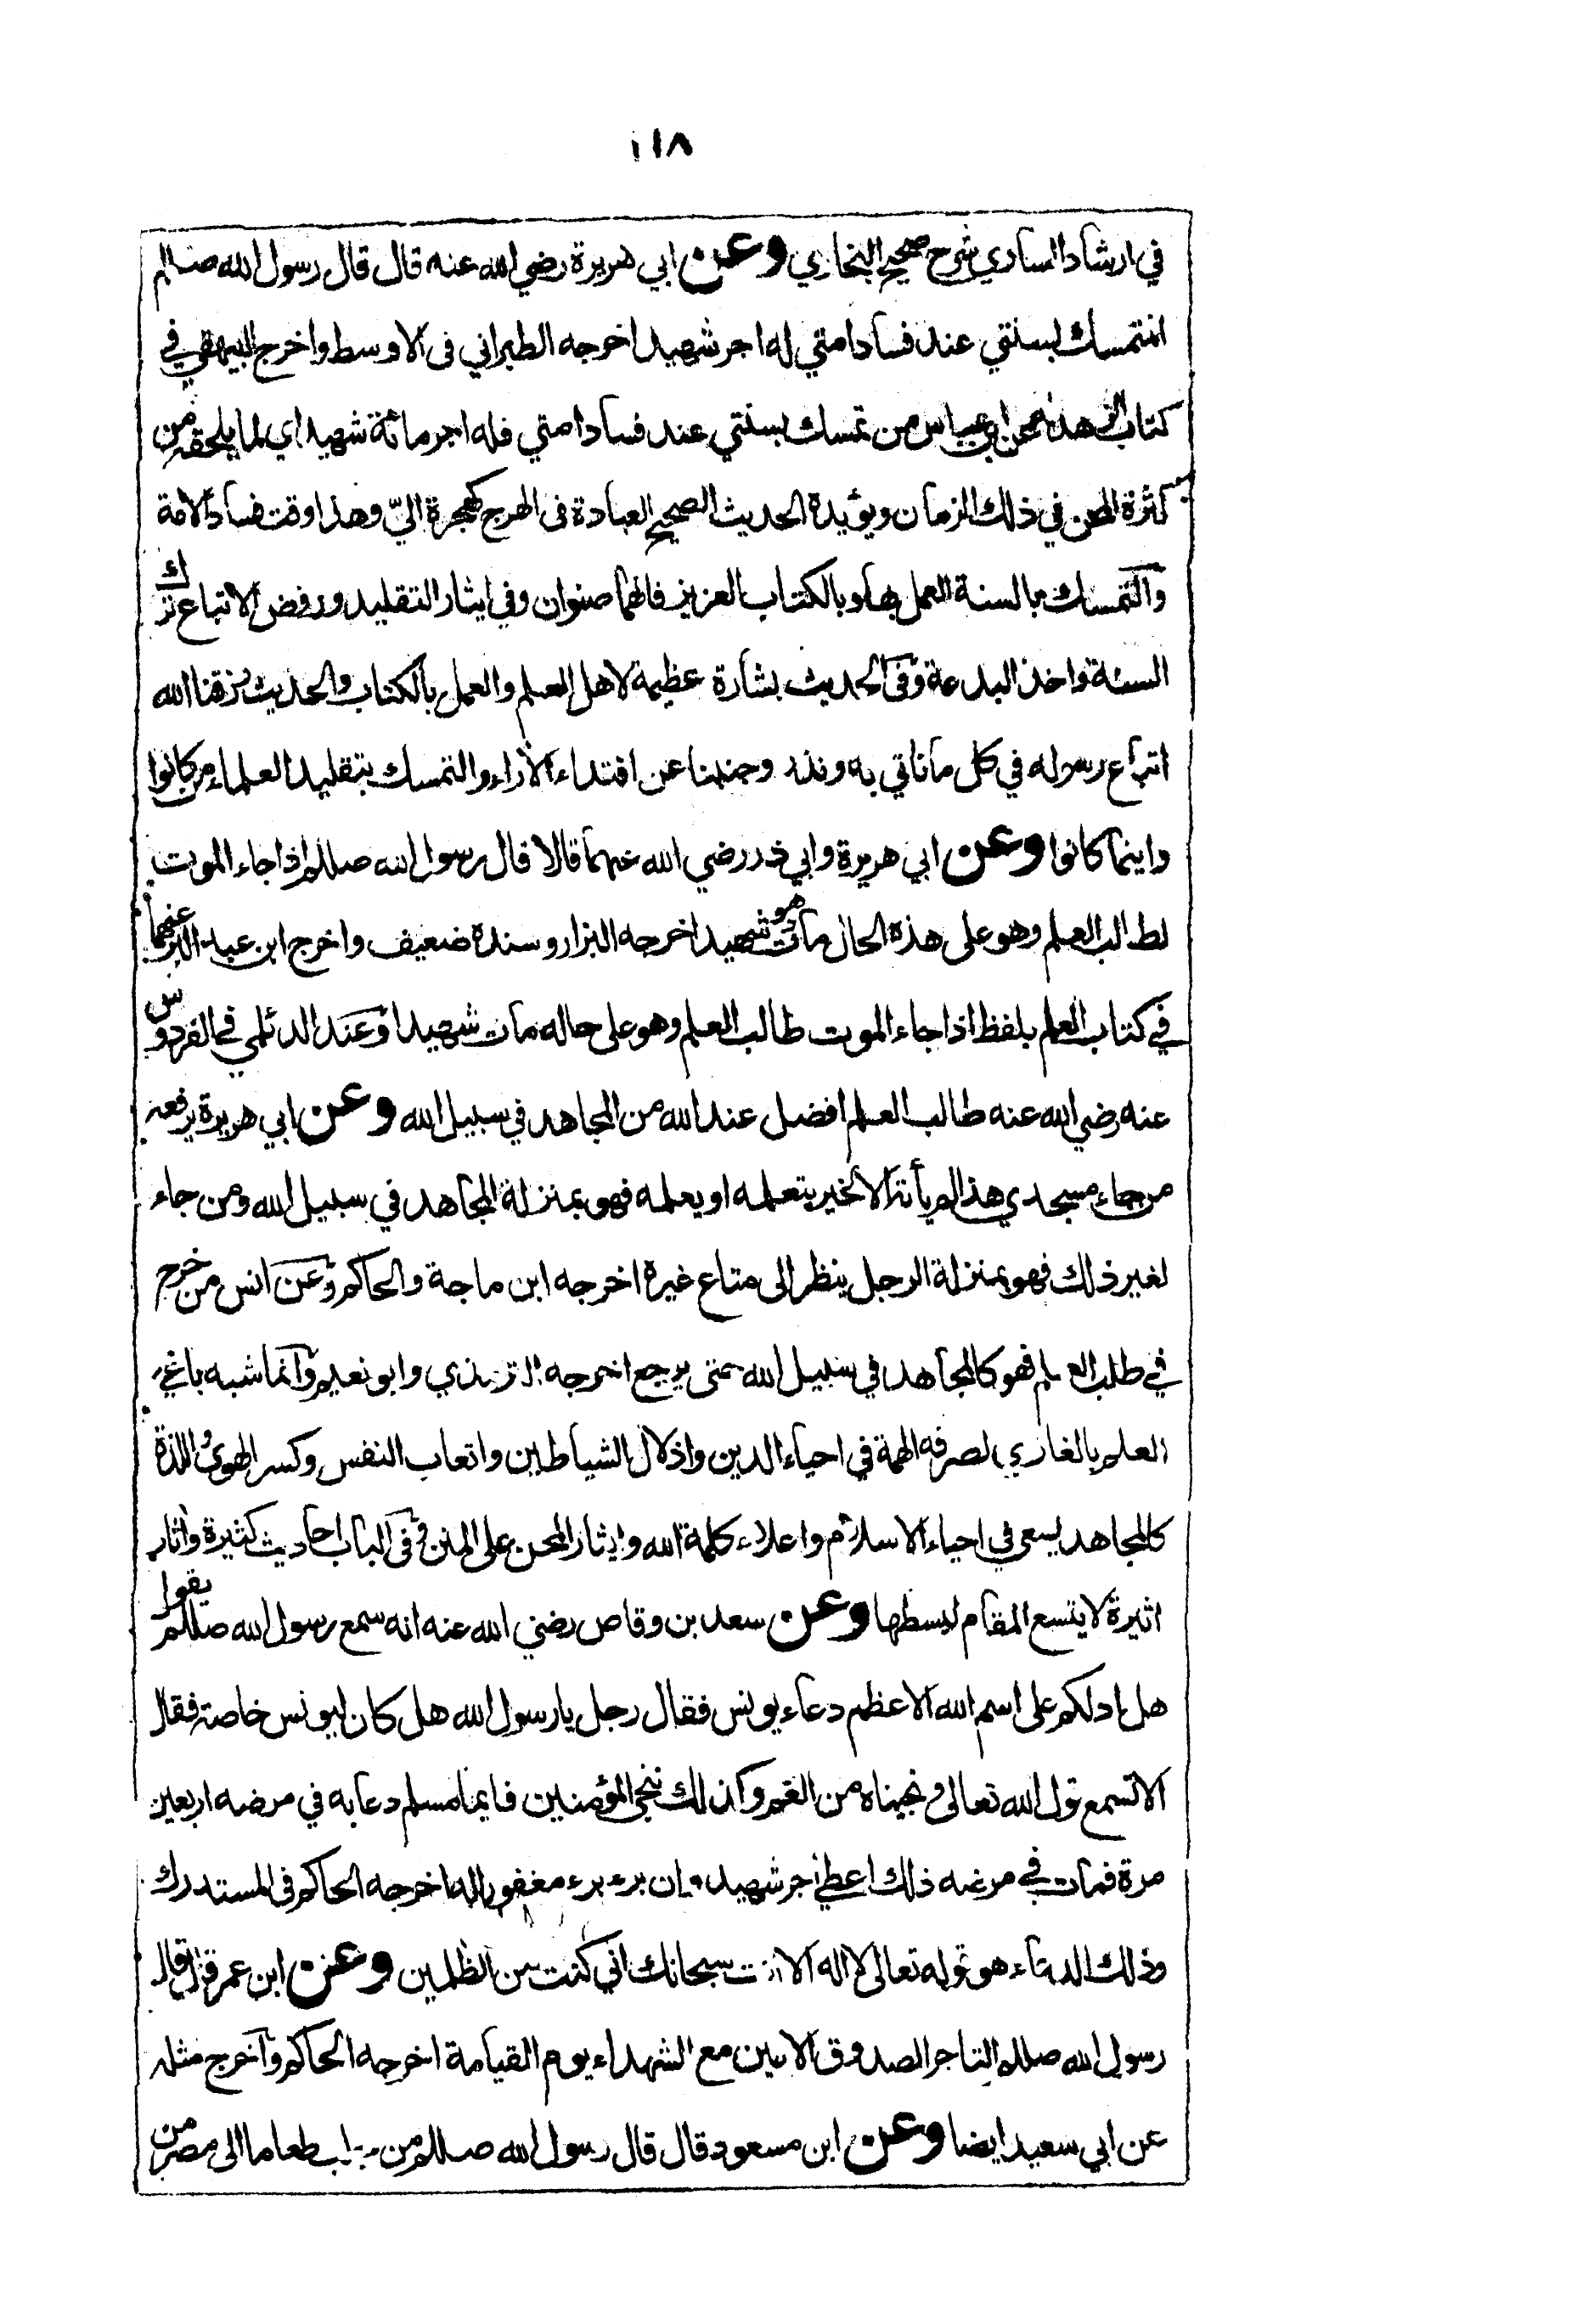 ١١٨
في ارشاد الساري شرح صحيح البخاري وعن ابي هريرة رضي الله عنه قال قال رسول الله صللم
المتمسك بسنتي عند فساد امتي له اجر شهيد اخرجه الطبراني في الاوسط واخرج البيهقي في
كتاب الزهد عن ابن عباس من تمسك بسنتي عند فساد امتي فله اجر مائة شهيد اي لما يلحقه من
كثرة المحن في ذلك الزمان ويؤيده الحديث الصحيح العبادة في الهرج كهجرة اليّ وهذا وقت فساد الامة
والتمسك بالسنة العمل بها وبالكتاب العزيز فانهما صنوان وفي ايثار التقليد ورفض الاتباع ترك
السنة واخذ البدعة وفي الحديث بشارة عظيمة لاهل العلم والعمل بالكتاب والحديث رزقنا الله
اتباع رسوله في كل ما ناتي به ونذر وجنبنا عن اقتداء الآراء والتمسك بتقليد العلماء من كانوا
واينما كانوا وعن ابي هريرة وابي ذر رضي الله عنهما قالا قال رسول الله صللم اذا جاء الموت
لطالب العلم وهو على هذه الحال مات وهو شهيد اخرجه البزار وسنده ضعيف واخرج ابن عبد البر عنهما
في كتاب العلم بلفظ اذا جاء الموت طالب العلم وهو على حاله مات شهيدا وعند الدئلمي في الفردوس
عنه رضي الله عنه طالب العلم افضل عند الله من المجاهد في سبيل الله وعن ابي هريرة يرفعه
من جاء مسجدي هذا لم يأته الا لخير يتعلمه او يعلمه فهو بمنزلة المجاهد في سبيل الله ومن جاء
لغير ذلك فهو بمنزلة الرجل ينظر الى متاع غيره اخرجه ابن ماجة والحاكم وعن انس من خرج
في طلب العلم فهو كالمجاهد في سبيل الله حتى يرجع اخرجه الترمذي وابو نعيم وانما شبه باغي
العلم بالغازي لصرفه الهمة في احياء الدين واذلال الشياطين واتعاب النفس وكسر الهوى واللذة
كالمجاهد يسعى في احياء الاسلام واعلاء كلمة الله وايثار المحن على المنن وفي الباب احاديث كثيرة وآثار
اثيرة لا يتسع المقام لبسطها وعن سعد بن وقاص رضي الله عنه انه سمع رسول الله صللم يقول
هل ادلكم على اسم الله الاعظم دعاء يونس فقال رجل يا رسول الله هل كان ليونس خاصة فقال
الا تسمع قول الله تعالى ونجيناه من الغم وكذلك ننجي المؤمنين فايما مسلم دعا به في مرضه اربعين
مرة فمات في مرضه ذلك اعطي اجر شهيد وان برء برء مغفورا له اخرجه الحاكم في المستدرك
وذلك الدعاء هو قوله تعالى لا اله الا انت سبحانك اني كنت من الظلمين وعن ابن عمر قال قال
رسول الله صللم التاجر الصدوق الامين مع الشهداء يوم القيامة اخرجه الحاكم وآخرج مثله
عن ابي سعيد ايضا وعن ابن مسعود قال قال رسول الله صللم من جلب طعاما الى مصر من